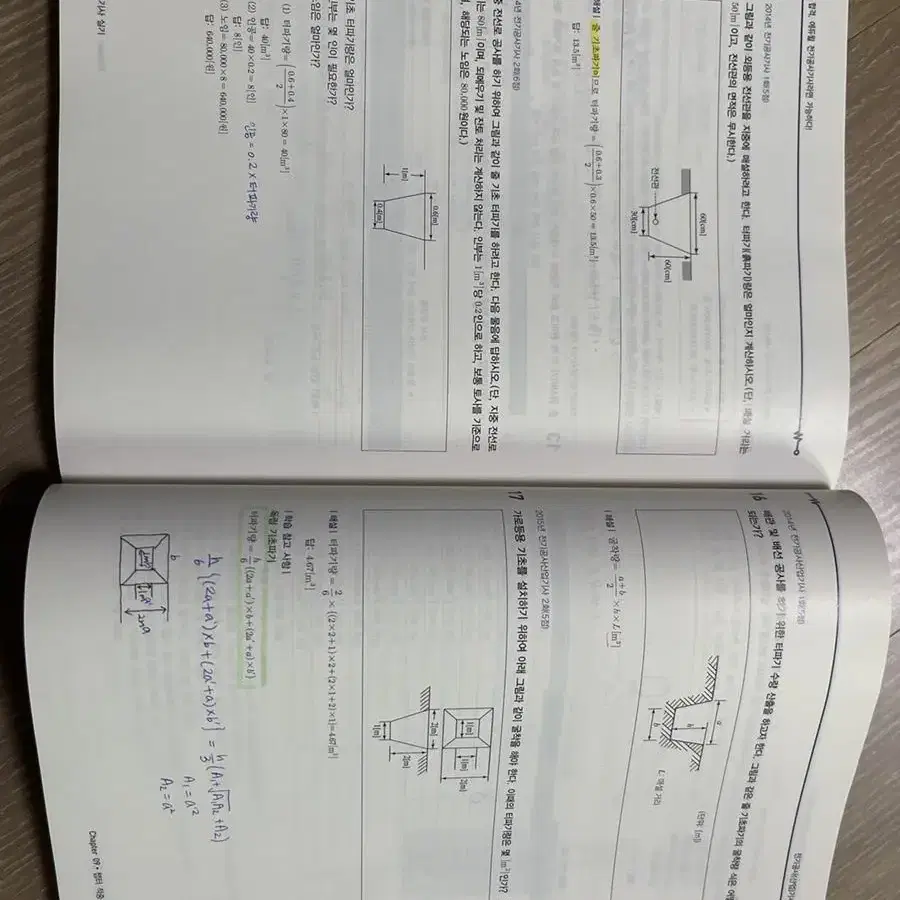 합격, 에듀윌 전기공사기사라면 가능하다!
2014년 전기공사기사 1회(5점)
그림과 같이 외등용 전선관을 지중에 매설하려고 한다. 터파기(흙파기)량은 얼마인지 계산하시오.(단, 매설 거리는
50[m]이고, 전선관의 면적은 무시한다.)
60[cm]
전선관
60[cm]
30[cm]
해설 | 줄 기초파기이므로 터파기량 = (0.6+0.3/2)×0.6×50 = 13.5[m³]
답: 13.5[m³]
년 전기공사기사 2회(6점)
중 전선로 공사를 하기 위하여 그림과 같이 줄 기초 터파기를 하려고 한다. 다음 물음에 답하시오.(단, 지중 전선로
는 80[m]이며, 되메우기 및 잔토 처리는 계산하지 않는다. 인부는 1[m³]당 0.2인으로 하고, 보통 토사를 기준으로
, 해당되는 노임은 80,000원이다.)
0.6[m]
1[m]
0.4[m]
기초 터파기량은 얼마인가?
부는 몇 인이 필요한가?
임은 얼마인가?
(1) 터파기량 = (0.6+0.4/2)×1×80 = 40[m³]
답: 40[m³]
(2) 인공 = 40×0.2 = 8[인]
인공 = 0.2 × 터파기량
답: 8[인]
(3) 노임 = 80,000×8 = 640,000[원]
답: 640,000[원]
기사 실기
전기공사산업기
2014년 전기공사산업기사 1회(5점)
16 배관 및 배선 공사를 하기 위한 터파기 수량 산출을 하고자 한다. 그림과 같은 줄 기초파기의 굴착량 식은 어
되는가?
(단위: [m])
a
h
b
L: 매설 거리
| 해설 | 굴착량 = a+b/2 × h × L[m³]
2015년 전기공사산업기사 2회(5점)
17 가로등용 기초를 설치하기 위하여 아래 그림과 같이 굴착을 해야 한다. 이때의 터파기량은 몇 [m³]인가?
1[m]
1[m]
2[m]
2[m]
2[m]
1[m]
| 해설 | 터파기량 = 2/6 × {(2×2+1)×2+(2×1+2)×1} = 4.67[m³]
답: 4.67[m³]
| 학습 참고 사항 |
독립 기초파기
터파기량 = h/6{(2a+a′)×b+(2a′+a)×b′}
h/6 {(2a+a′)×b+(2a′+a)×b′} = h/3 (A₁+√A₁A₂+A₂)
A₁=a′²
A₂=a²
b
Chapter 09 •